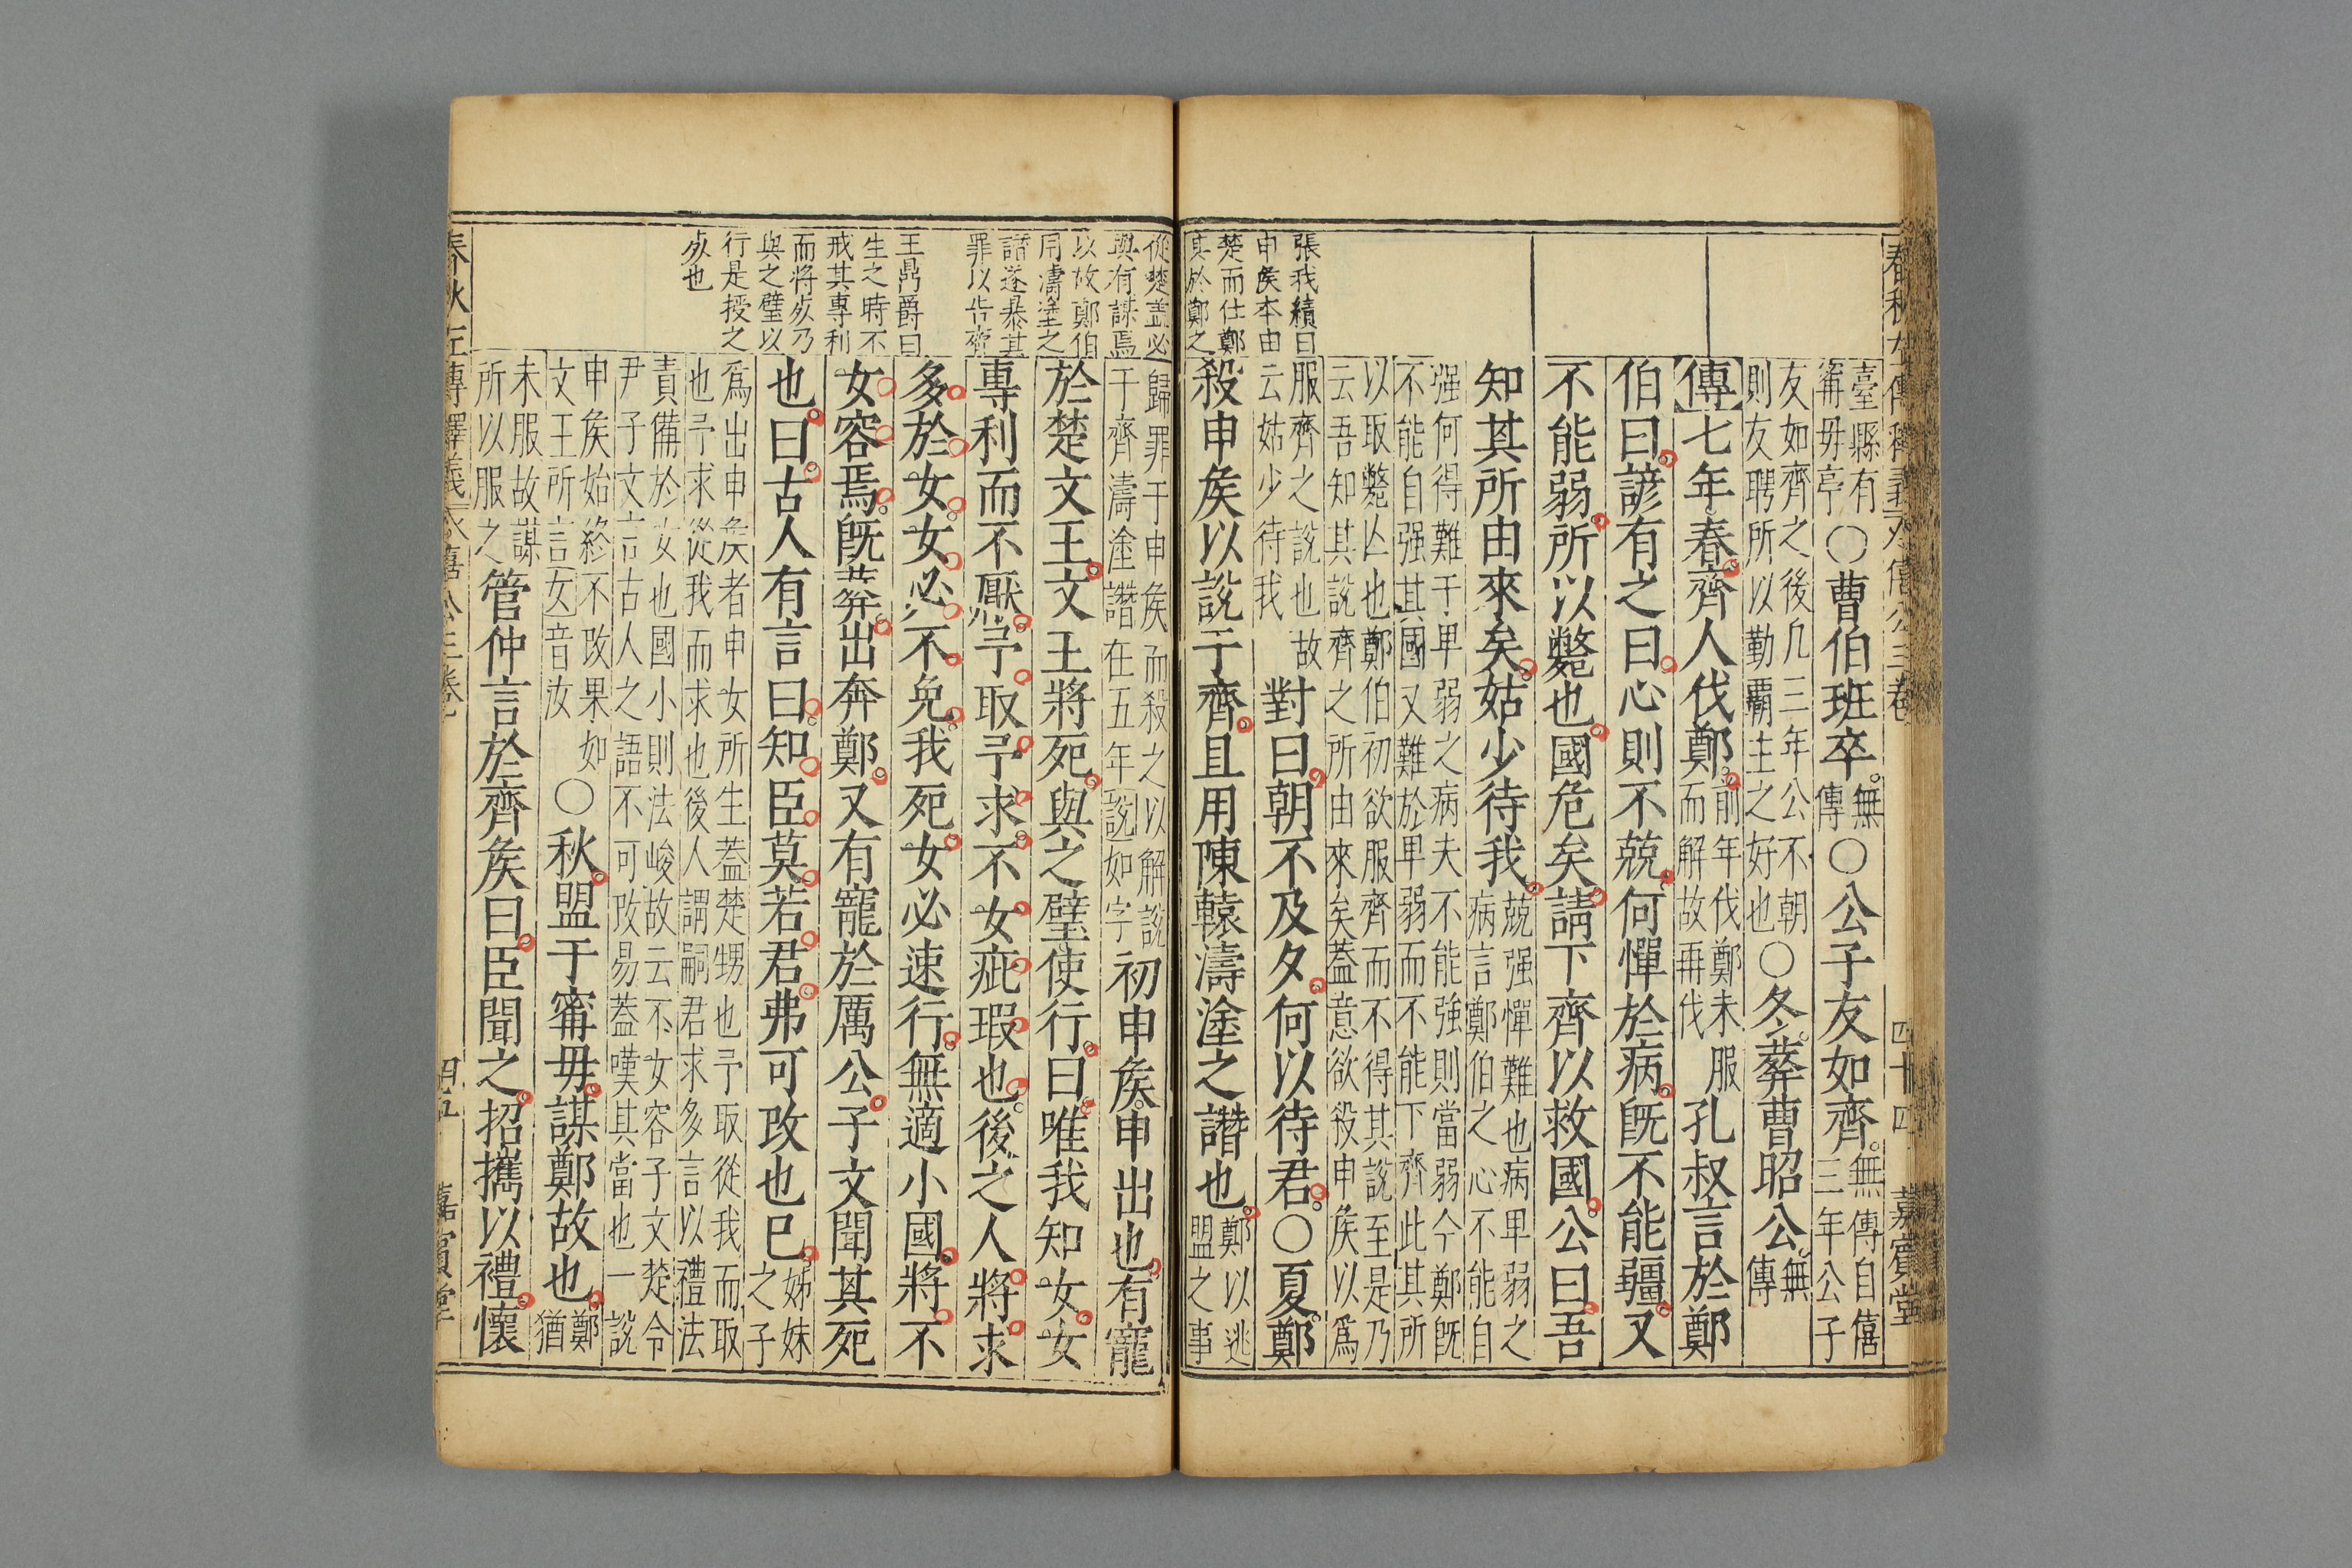 臺縣有
甯毋亭
○曹伯班卒。
無
傳
○公子友如齊。
無傳自僖
三年公子
友如齊之後凡三年公不朝
則友聘所以勤霸主之好也
○冬。葬曹昭公。
無
傳
傳七年春。齊人伐鄭。
前年伐鄭未服
而解故再伐
孔叔言於鄭
伯曰。諺有之曰。心則不競。何憚於病。旣不能彊。又
不能弱。所以斃也。國危矣。請下齊以救國。公曰。吾
知其所由來矣。姑少待我。
競强憚難也病卑弱之
病言鄭伯之心不能自
强何得難于卑弱之病夫不能強則當弱今鄭旣
不能自强其國又難於卑弱而不能下齊此其所
以取斃亾也鄭伯初欲服齊而不得其説至是乃
云吾知其説齊之所由來矣葢意欲殺申矦以爲
服齊之說也故
云姑少待我
對曰。朝不及夕。何以待君。○夏。鄭
殺申矦以說于齊。且用陳轅濤塗之譖也。
鄭以逃
盟之事
張我續曰
申矦本由
楚而仕鄭
其於鄭之
從楚葢必
與有謀焉
以故鄭伯
用濤塗之
譖遂暴其
罪以告齊
歸罪于申矦而殺之以解説
于齊濤塗譖在五年説如字
初申矦。申出也。有寵
於楚文王。文王將死。與之璧使行。曰。唯我知女。女
專利而不厭。予取予求。不女疵瑕也。後之人將求
多於女。女必不免。我死。女必速行。無適小國。將不
女容焉。旣葬。出奔鄭。又有寵於厲公。子文聞其死
也。曰。古人有言曰。知臣莫若君。弗可改也已。
姊妹
之子
爲出申矦者申女所生葢楚甥也予取從我而取
也予求從我而求也後人謂嗣君求多言以禮法
責備於女也國小則法峻故云不女容子文楚令
尹子文言古人之語不可改易葢嘆其當也一說
申矦始終不改果如
文王所言女音汝
○秋。盟于甯毋。謀鄭故也。
鄭
猶
未服故謀
所以服之
管仲言於齊矦曰。臣聞之。招攜以禮。懷
王鼎爵曰
生之時不
戒其專利
而將死乃
與之璧以
行是授之
死也
四十四
嘉賓堂